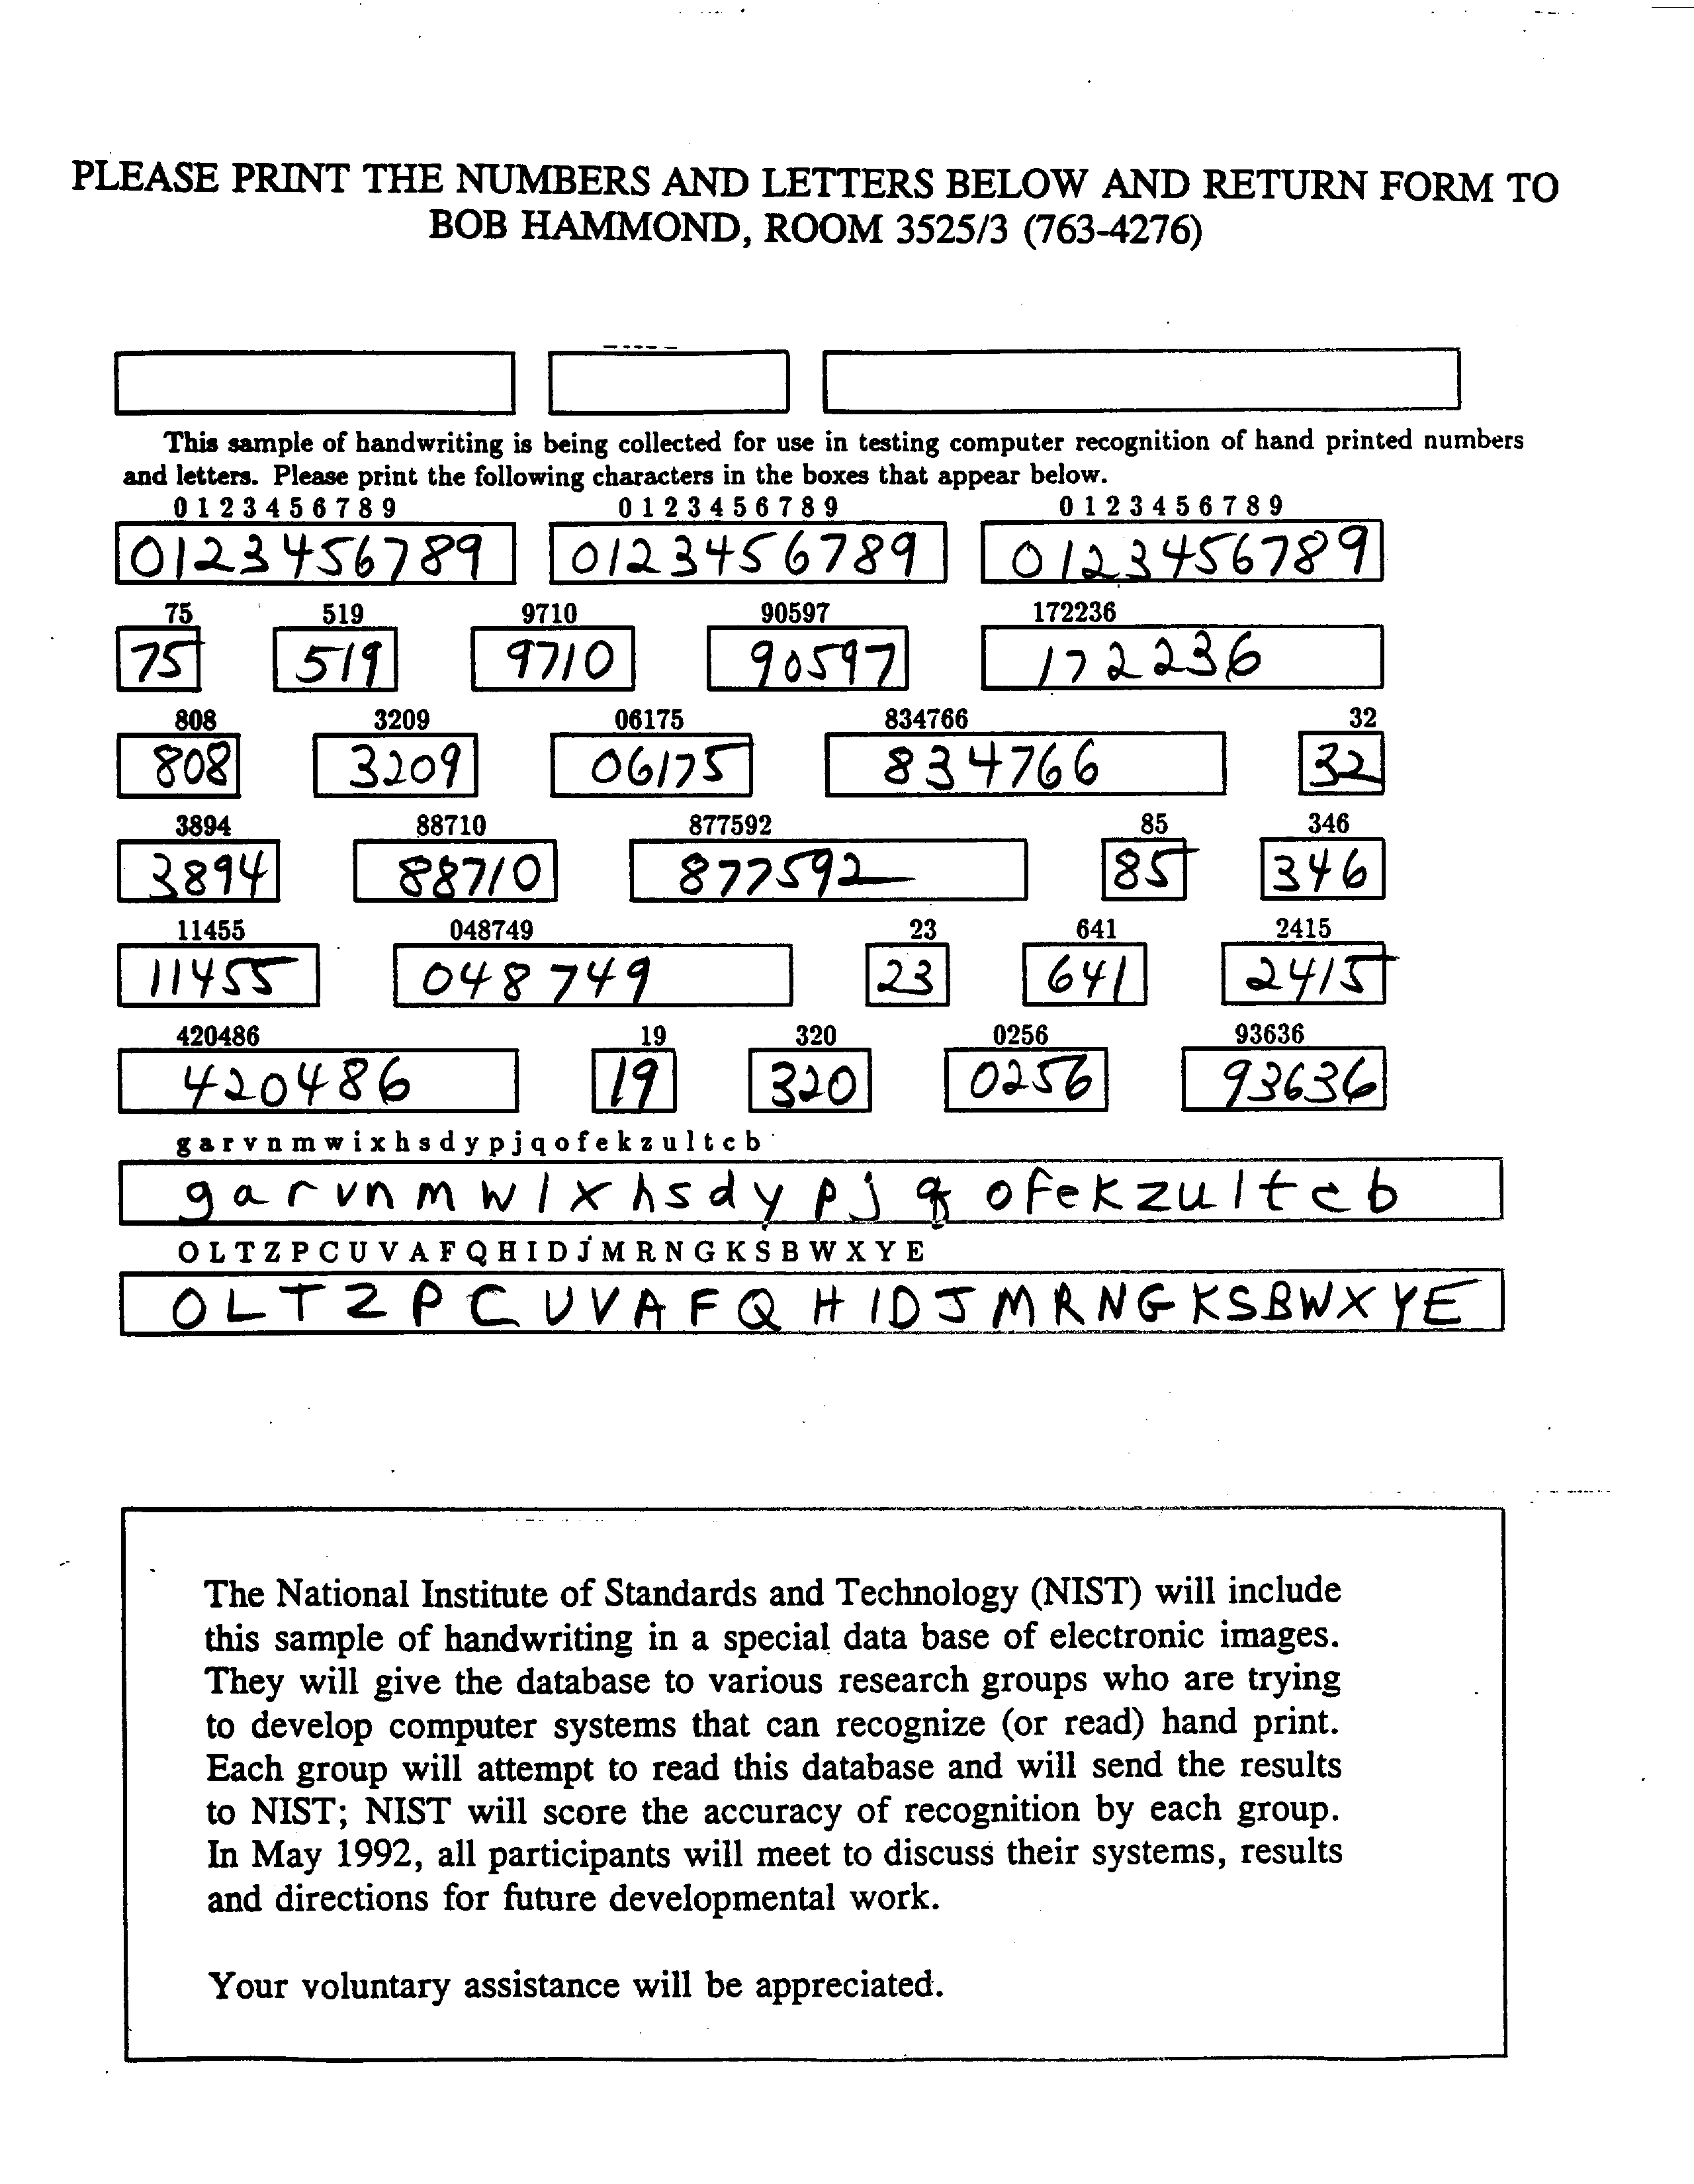 PLEASE PRINT THE NUMBERS AND LETTERS BELOW AND RETURN FORM TO
BOB HAMMOND, ROOM 3525/3 (763-4276)
This sample of handwriting is being collected for use in testing computer recognition of hand printed numbers
and letters. Please print the following characters in the boxes that appear below.
0 1 2 3 4 5 6 7 8 9 0 1 2 3 4 5 6 7 8 9 0 1 2 3 4 5 6 7 8 9
0123456789 0123456789 0123456789
75 519 9710 90597 172236
75 519 9710 90597 172236
808 3209 06175 834766 32
808 3209 06175 834766 32
3894 88710 877592 85 346
3894 88710 877592 85 346
11455 048749 23 641 2415
11455 048749 23 641 2415
420486 19 320 0256 93636
420486 19 320 0256 93636
g a r v n m w i x h s d y p j q o f e k z u l t c b
g a r v n m w l x h s d y p j q o f e k z u l t c b
O L T Z P C U V A F Q H I D J M R N G K S B W X Y E
O L T Z P C U V A F Q H I D J M R N G K S B W X Y E
The National Institute of Standards and Technology (NIST) will include
this sample of handwriting in a special data base of electronic images.
They will give the database to various research groups who are trying
to develop computer systems that can recognize (or read) hand print.
Each group will attempt to read this database and will send the results
to NIST; NIST will score the accuracy of recognition by each group.
In May 1992, all participants will meet to discuss their systems, results
and directions for future developmental work.
Your voluntary assistance will be appreciated.